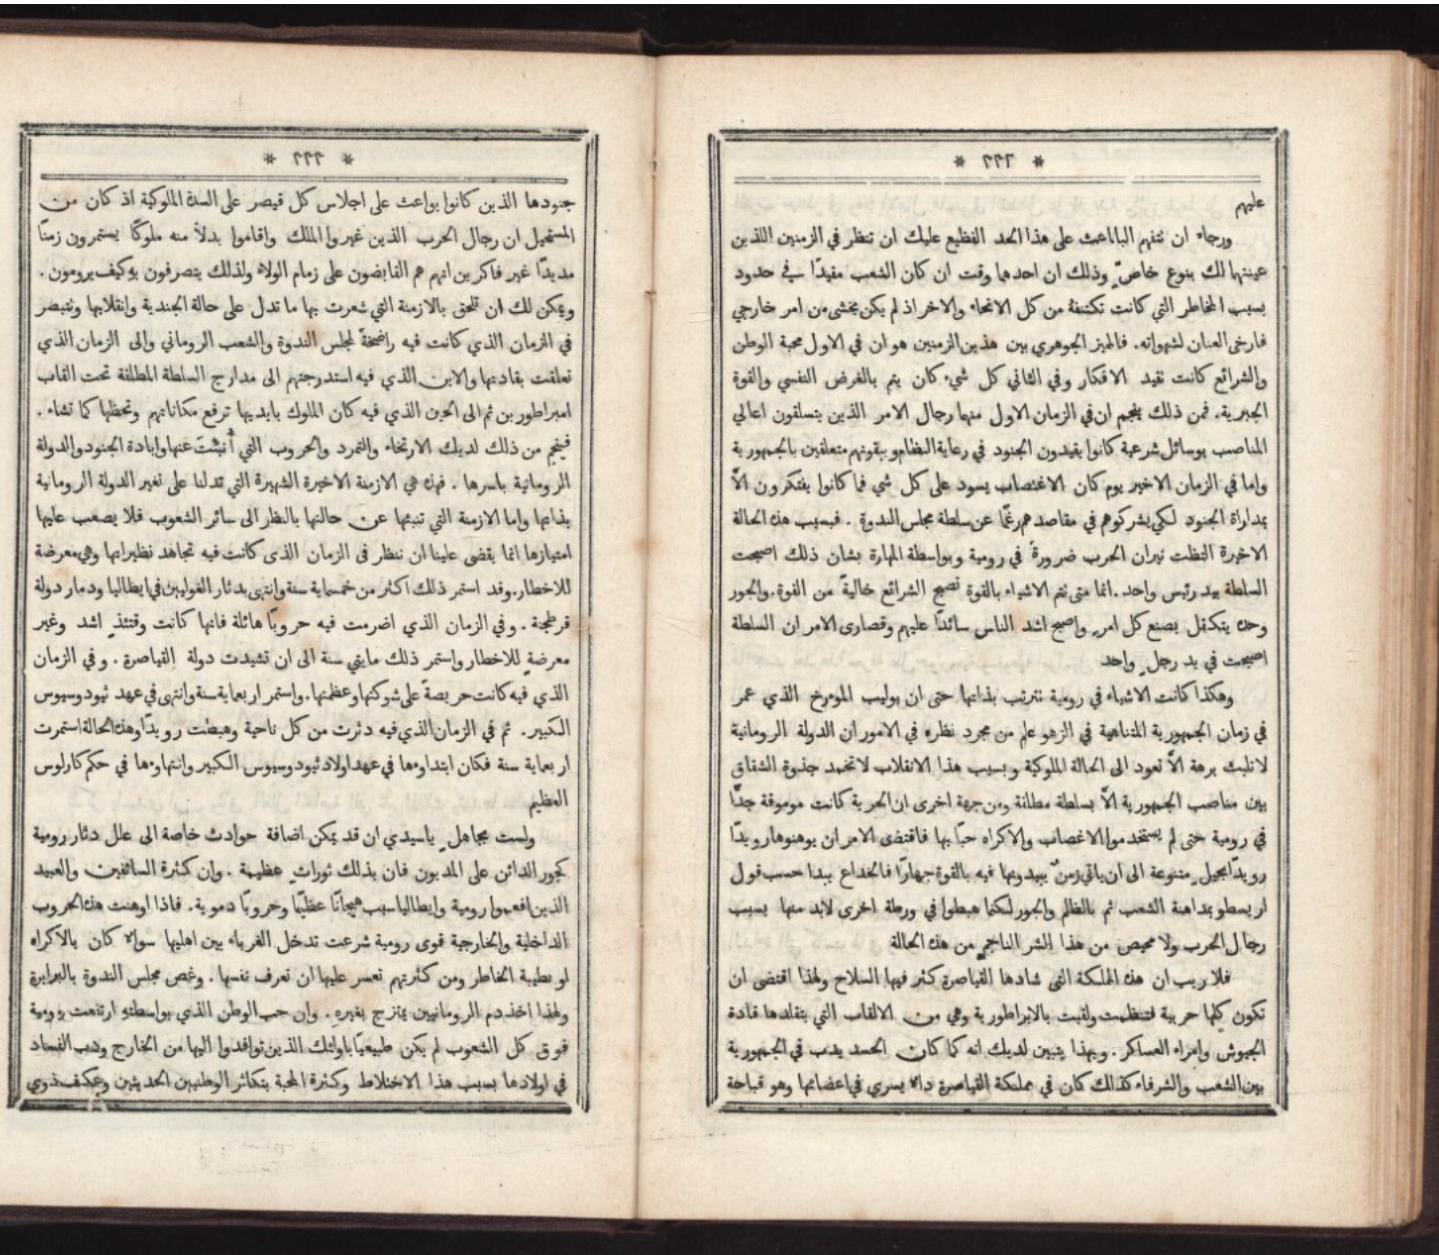 * ٢٢٦ *
عليهم
ورجاء ان تتفهم الباعث على هذا الحد الفظيع عليك ان تنظر في الزمنين اللذين
عينتهما لك بنوع خاصٍّ وذلك ان احدها وقت ان كان الشعب مقيدًا في حدود
بسبب المخاطر التي كانت تكتنفهُ من كل الانحاء والاخر اذ لم يكن يخشى من امر خارجي
فارخى العنان لشهواته. فالميز الجوهري بين هذين الزمنين هو ان في الاول محبة الوطن
والشرائع كانت تقيد الافكار وفي الثاني كل شيء كان يتم بالغرض النفسي والقوة
الجبرية. فمن ذلك ينجم ان في الزمان الاول منها رجال الامر الذين يتسلقون اعالي
المناصب بوسائل شرعية كانوا يقيدون الجنود في رعاية النظام ويبقونهم متعلقين بالجمهورية
واما في الزمان الاخير يوم كان الاغتصاب يسود على كل شي فما كانوا يفتكرون الاَّ
بمداراة الجنود لكي يشركوهم في مقاصدهم رغمًا عن سلطة مجلس الندوة . فبسبب هذه الحالة
الاخيرة التظت نيران الحرب ضرورةً في رومية وبواسطة المهارة بشان ذلك اصبحت
السلطة بيد رئيس واحد. انما متى تتم الاشياء بالقوة تصبح الشرائع خاليةً من القوة. والجور
وحده يتكفل بصنع كل امرٍ واصبح اشد الناس سائدًا عليهم وقصارى الامر ان السلطة
اصبحت في يد رجلٍ واحد
وهكذا كانت الاشياء في رومية تترتب بذاتها حتى ان بوليب المورخ الذي عمر
في زمان الجمهورية المتناهية في الزهو علم من مجرد نظره في الامور ان الدولة الرومانية
لا تلبث برهة الاَّ تعود الى الحالة الملوكية وبسبب هذا الانقلاب لا تخمد جذوة الشقاق
بين مناصب الجمهورية الاَّ بسلطة مطلقة ومن جهة اخرى ان الحرية كانت موموقة جدًّا
في رومية حتى لم يستخدموا الاغصاب والاكراه حبًا بها فاقتضى الامر ان يوهنوها رويدًا
رويدًا بحيلٍ متنوعة الى ان ياتي زمنٌ يبيدونها فيه بالقوة جهارًا فالخداع يبدا حسب قول
ارسطو بمداهنة الشعب ثم بالظلم والجور لكنما هبطوا في ورطة اخرى لابد منها بسبب
رجال الحرب ولا محيص من هذا الشر الناجم من هذه الحالة
فلا ريب ان هذه المملكة التى شادها القياصرة كثر فيها السلاح ولهذا اقتضى ان
تكون كلها حربية فتنظمت ولقبت بالابراطورية وهي من الالقاب التي يتقلدها قادة
الجيوش وامراء العساكر. وبهذا يتبين لديك انه كما كان الحسد يدب في الجمهورية
بين الشعب والشرفاء كذلك كان في مملكة القياصرة داء يسري في اعضائها وهو قباحة
* ٢٢٢ *
جنودها الذين كانوا بواعث على اجلاس كل قيصر على السدة الملوكية اذ كان من
المستحيل ان رجال الحرب الذين غيروا الملك واقاموا بدلاً منه ملوكًا يستمرون زمنًا
مديدًا غير فاكرين انهم هم القابضون على زمام الولاء ولذلك يتصرفون به كيف يرومون .
ويمكن لك ان تلحق بالازمنة التي شعرت بها ما تدل على حالة الجندية وانقلابها وتتبصر
في الزمان الذي كانت فيه راضخةً لمجلس الندوة والشعب الروماني والى الزمان الذي
تعلقت بقادتها والاين الذي فيه استدرجتهم الى مدارج السلطة المطلقة تحت القاب
امبراطورين ثم الى الحين الذي فيه كان الملوك بايديها ترفع مكاناتهم وتحطها كما تشاء .
فينجم من ذلك لديك الارتخاء والتمرد والحروب التي أُنشئت عنها وابادة الجنود والدولة
الرومانية باسرها . فهذه هي الازمنة الاخيرة الشهيرة التي تدلنا على تغير الدولة الرومانية
بذاتها واما الازمنة التي تنبئها عن حالتها بالنظر الى سائر الشعوب فلا يصعب عليها
امتيازها انما يقضى علينا ان ننظر فى الزمان الذى كانت فيه تجاهد نظيراتها وهي معرضة
للاخطار. وقد استمر ذلك اكثر من خمسماية سنة وانتهى بدثار الغوليين في ايطاليا ودمار دولة
قرطجنة . وفي الزمان الذي اضرمت فيه حروبًا هائلة فانها كانت وقتئذٍ اشد وغير
معرضةٍ للاخطار واستمر ذلك مايتي سنة الى ان تشيدت دولة القياصرة . وفي الزمان
الذي فيه كانت حريصةً على شوكتها وعظمتها. واستمر اربعماية سنة وانتهى في عهد ثيودوسيوس
الكبير. ثم في الزمان الذي فيه دثرت من كل ناحية وهبطت رويدًا وهذه الحالة استمرت
اربعماية سنة فكان ابتداوءها في عهد اولاد ثيودوسيوس الكبير وانتهاوءها في حكم كارلوس
العظيم
ولست بجاهلٍ ياسيدي ان قد يمكن اضافة حوادث خاصة الى علل دثار رومية
كجور الدائن على المديون فان بذلك ثوراتٍ عظيمة . وان كثرة السائفين والعبيد
الذين افعموا رومية وايطاليا سبب هيجانًا عظيمًا وحروبًا دموية. فاذا اوهنت هذه الحروب
الداخلية والخارجية قوى رومية شرعت تدخل الغرباء بين اهليها سواءً كان بالاكراه
او بطيبة الخاطر ومن كثرتهم تعسر عليها ان تعرف نفسها . وغص مجلس الندوة بالبرابرة
ولهذا اخذ دم الرومانيين يمتزج بغيره . وان حب الوطن الذي بواسطته ارتفعت رومية
فوق كل الشعوب لم يكن طبيعيًا باولئك الذين توافدوا اليها من الخارج ودب الفساد
في اولادها بسبب هذا الاختلاط وكثرة المحبة بتكاثر الوطنيين الحديثين وعكف ذوي